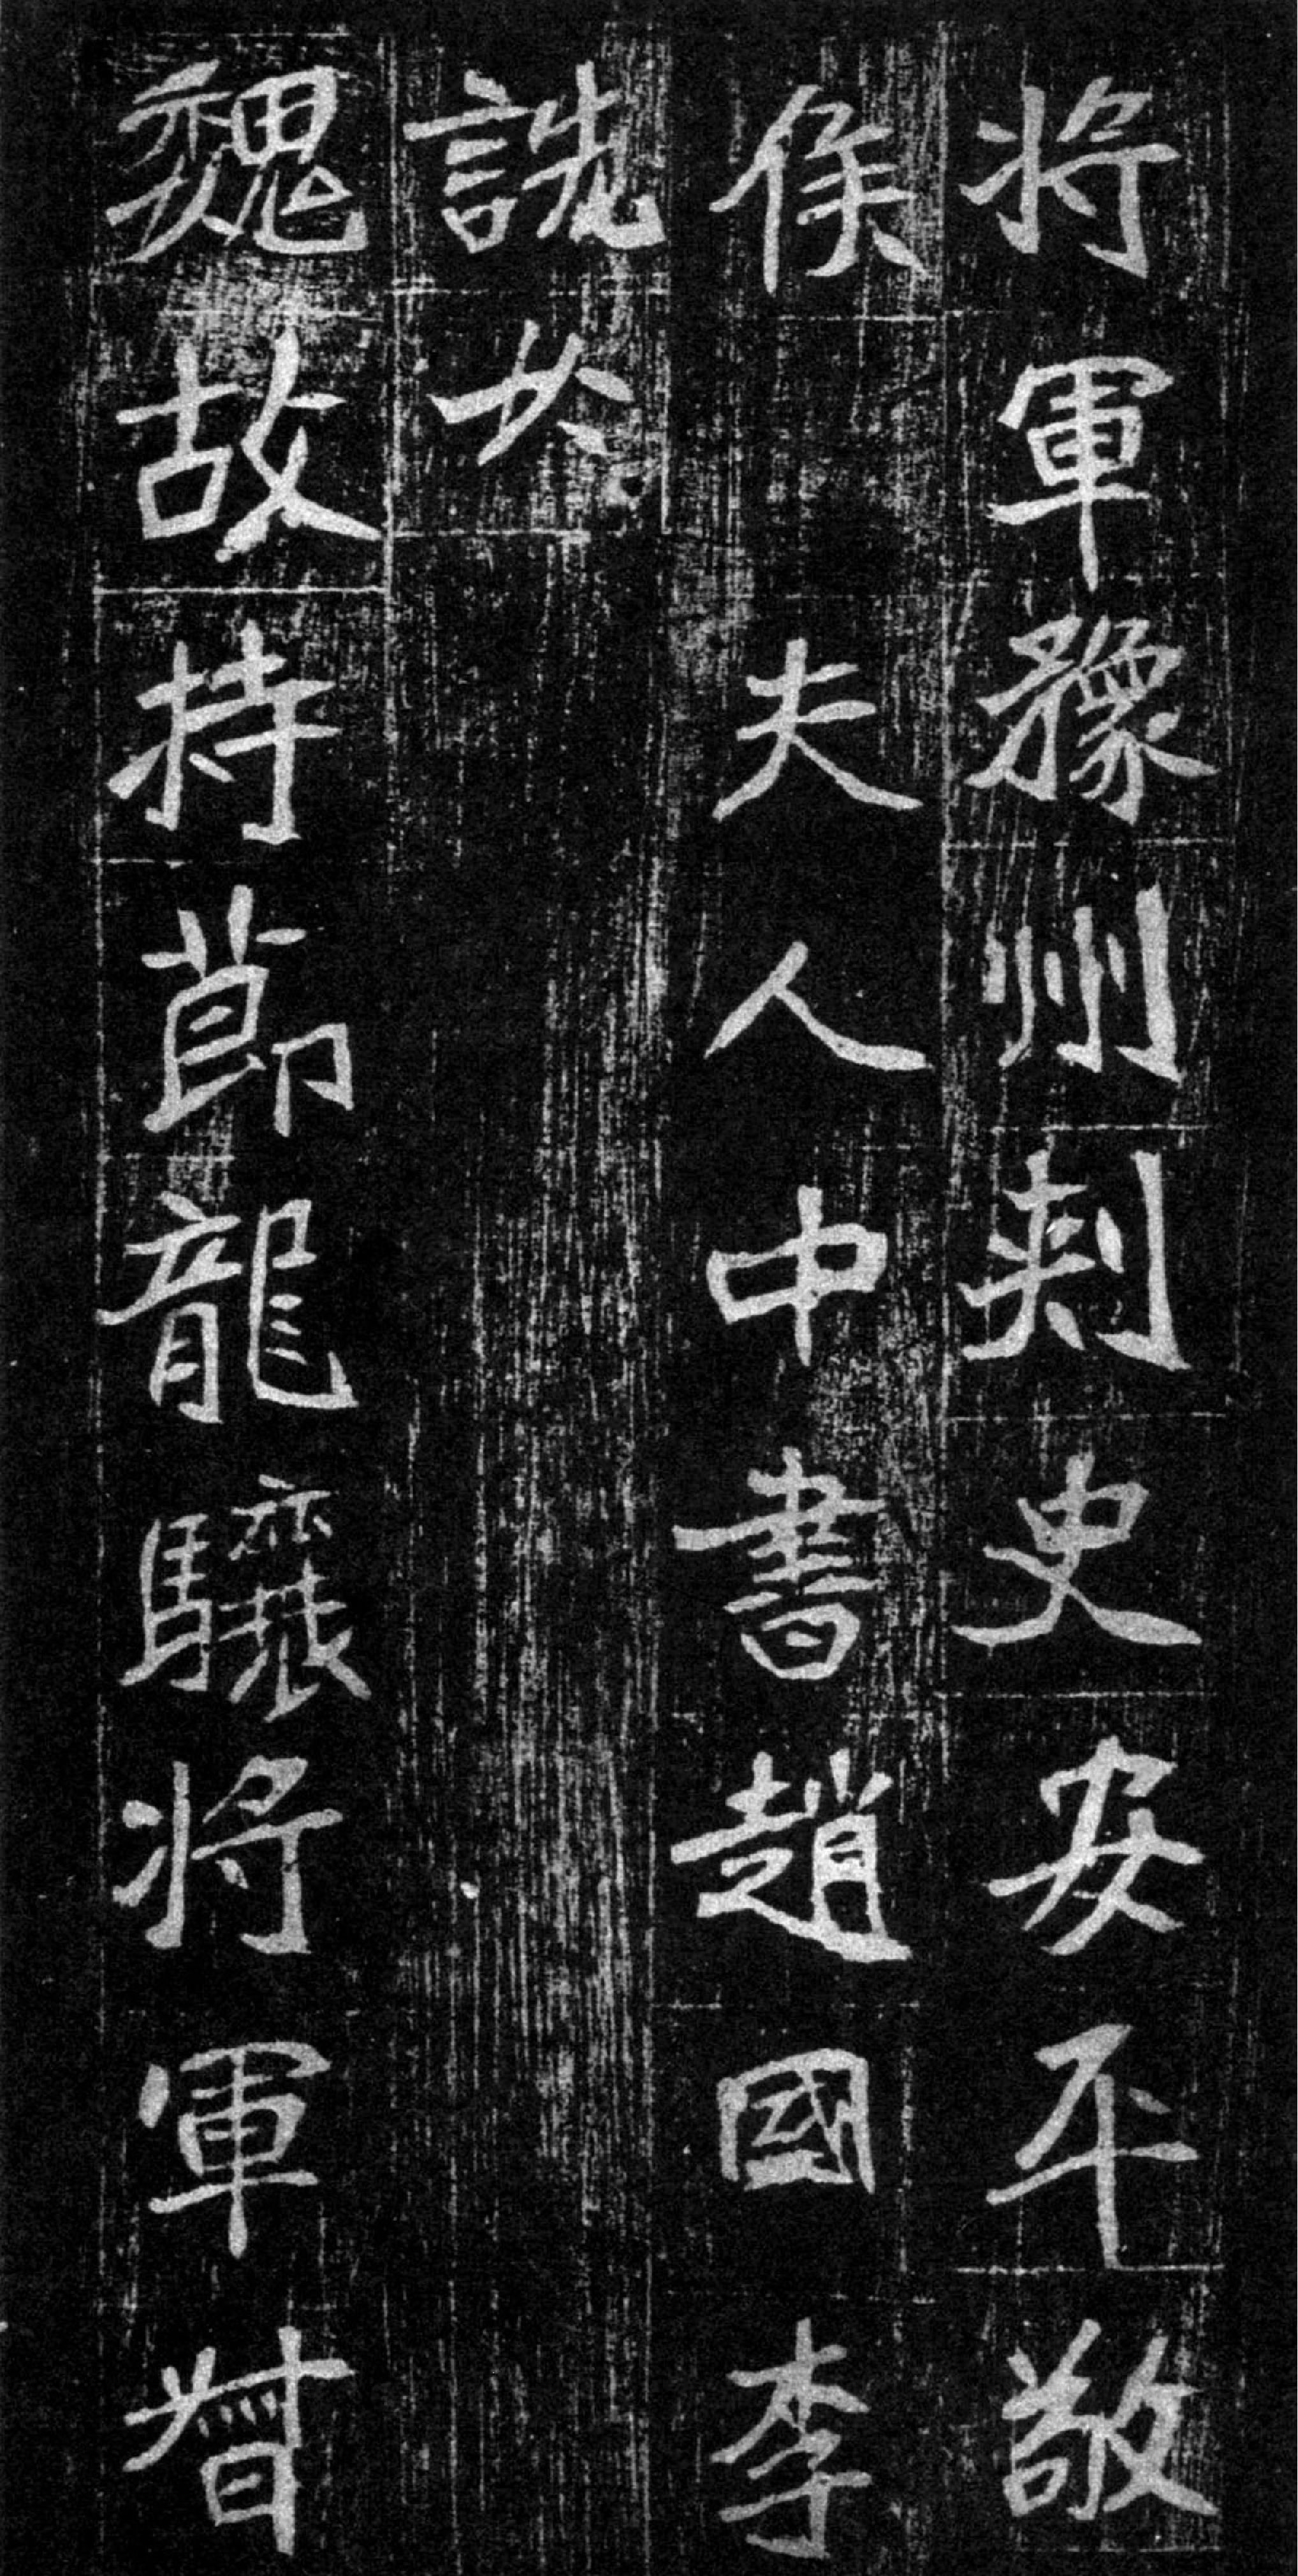 将軍豫州刺史安平敬
侯 夫人中書趙國李
詵女
魏故持節龍驤将軍督